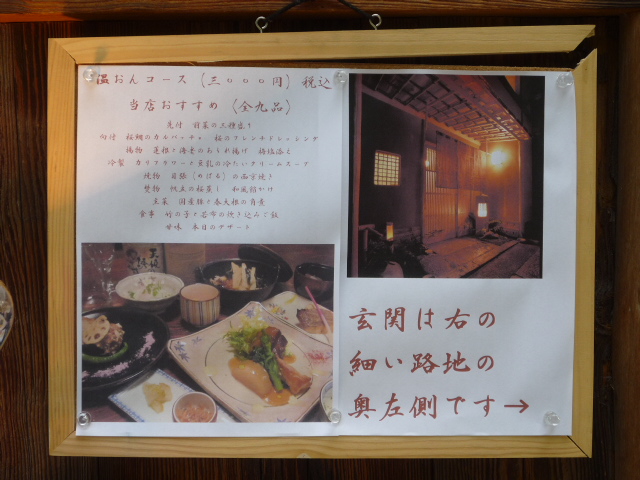 温おんコース (三〇〇〇円) 税込
当店おすすめ (全九品)
先付 前菜の三種盛り
向付 桜鯛のカルパッチョ 桜のフレンチドレッシング
揚物 蓮根と海老のあられ揚げ 梅塩添え
冷製 カリフラワーと豆乳の冷たいクリームスープ
焼物 目張(めばる)の西京焼き
焚物 帆立の桜蒸し 和風餡かけ
主菜 国産豚と春大根の角煮
食事 竹の子と若布の炊き込みご飯
甘味 本日のデザート
玄関は右の
細い路地の
奥左側です→